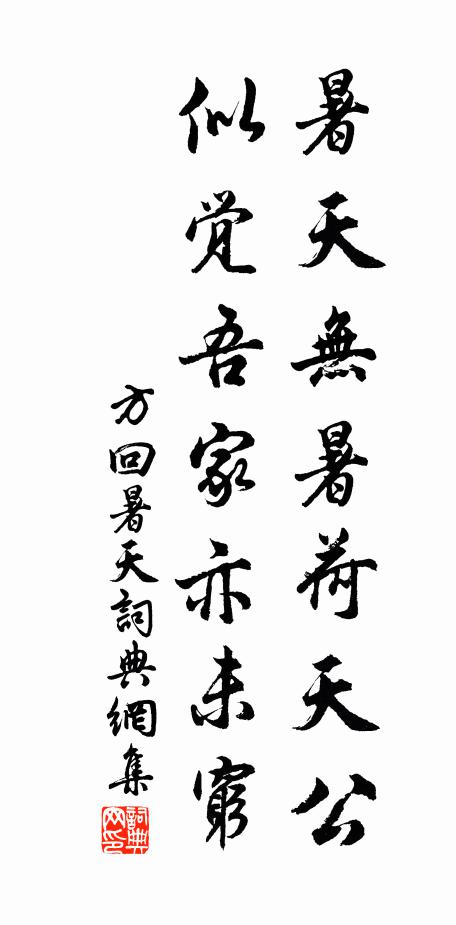 暑天無暑荷天公
似觉吾家亦未窮
方回暑天詞典網集
詞典网印